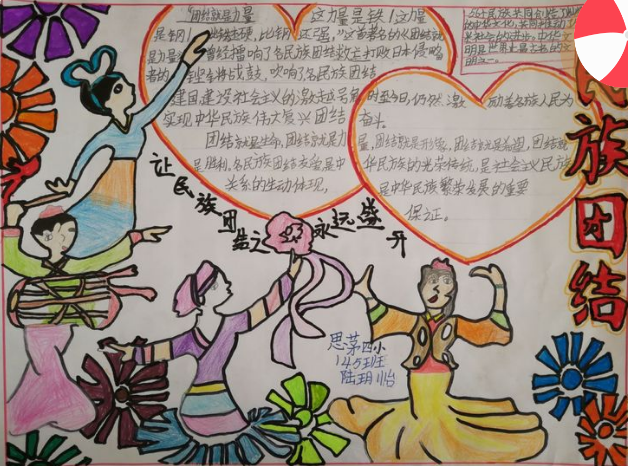 "团结就是力量
这力量是铁！这力量
是钢！比铁还硬，比钢还强，"这首著名的《团结就
是力量》曾经擂响了各民族团结救亡打败日本侵略
者的战鼓，吹响了各民族团结
建国，建设社会主义的激越号角，时至今日，仍然激励着各族人民为
实现中华民族伟大复兴团结奋斗。
团结就是生命，团结就是力量，团结就是形象，团结就是希望，团结就
是胜利，各民族团结友爱是中华民族的光荣传统，是社会主义民族
关系的生动体现，是中华民族繁荣发展的重要
保证。
56个民族共同创造了
的中华文化，共同推动了
关社会的进步，中华文
明是世界上最古老的文
明之一。
民族团结
让民族团结之 永远盛开
思茅四小
145班
陆玥怡